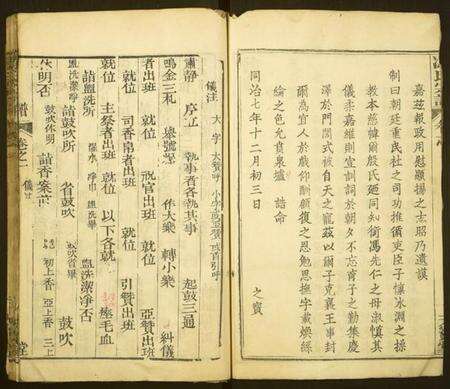 嘉茲報政用慰顯揚之志昭乃遺謨
制曰朝廷重民社之司功推循吏臣子懷冰淵之操
教本慈幃爾殷氏廼同知銜馮先仁之母淑慎其
儀柔嘉維則宣訓詞於朝夕不忘育子之勤集慶
澤於門閭式被自天之寵茲以爾子克襄王事封
爾為宜人於戲仰酬顧復之恩勉思撫字載煥絲
綸之色允賁泉壚 誥命
同治七年十二月初三日
之寶
儀注 大字
肅靜 序立 執事者各執其事 起鼓三通
鳴金三札 作大樂 轉小樂 糾儀
者出班 就位 祝官出班 就位 亞贊出班
就位 司香帛者出班 就位 引贊出班
就位 主祭者出班 就位 以下各就 瘞毛血
請盥洗所 盥洗 盥洗潔淨否
盥洗潔淨 請鼓吹所 省鼓吹 鼓吹
休明否 鼓吹休明 請香案前 初上香 亞上香 三上